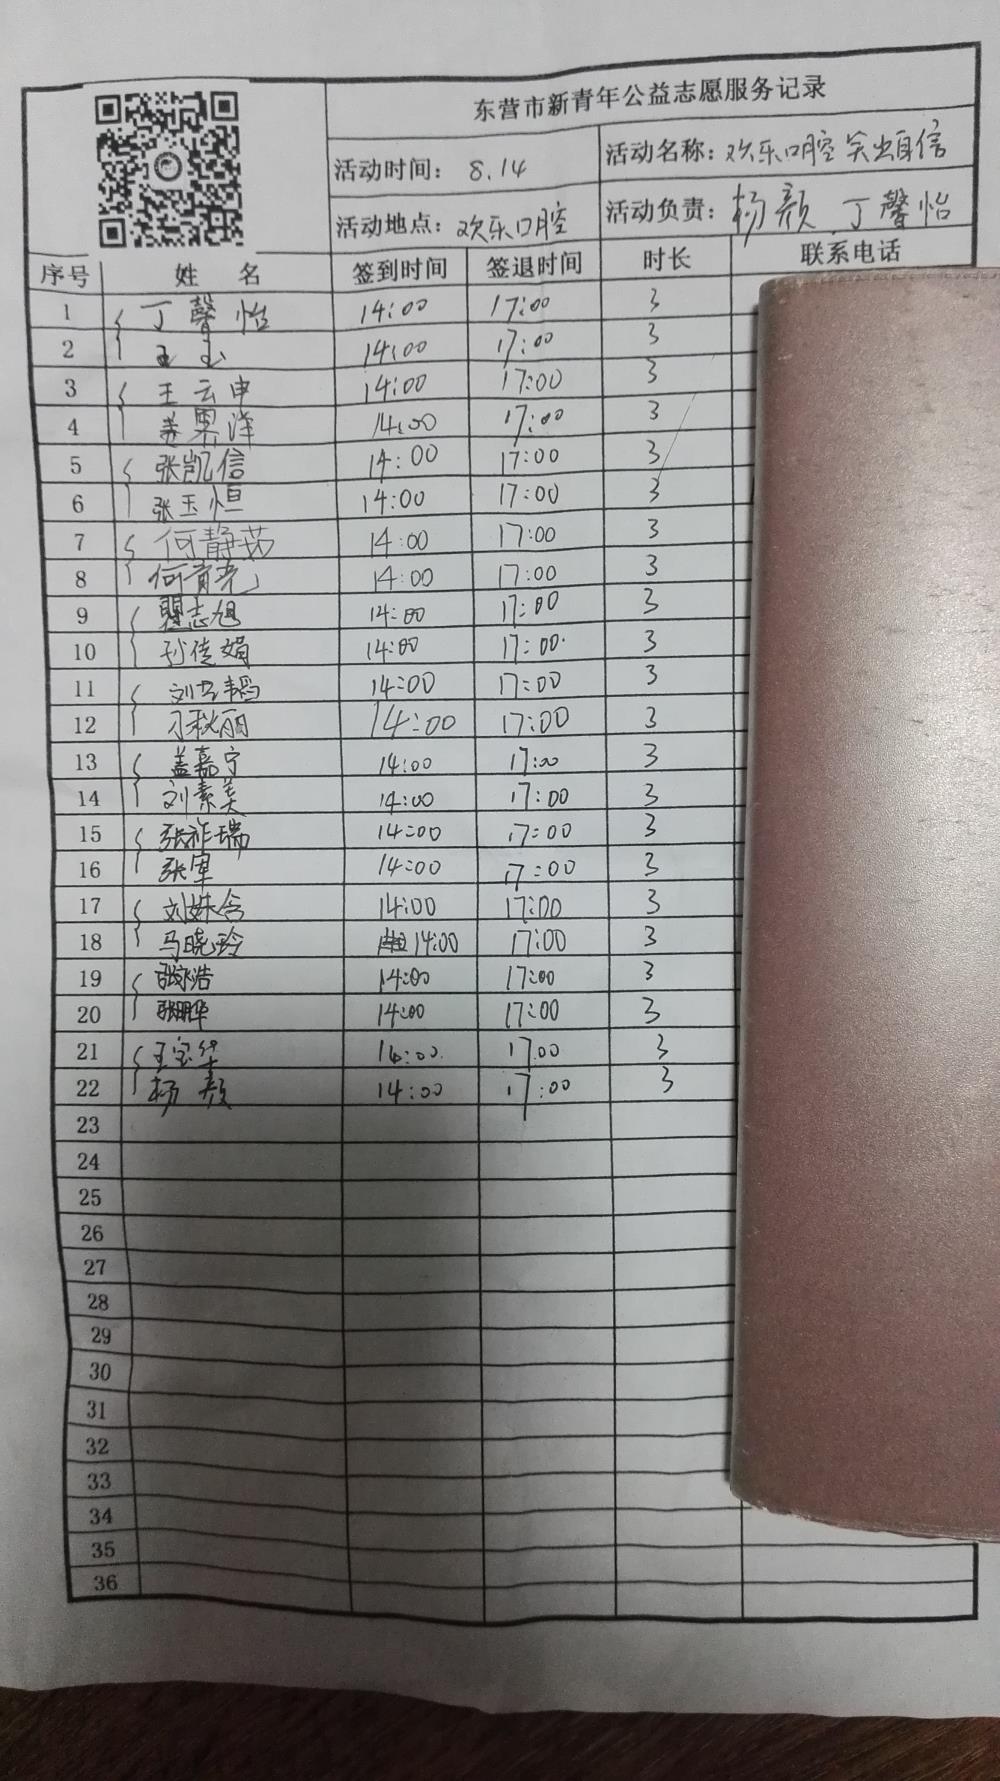 东营市新青年公益志愿服务记录
活动时间： 8.14 活动名称：欢乐口腔 笑出自信
活动地点：欢乐口腔 活动负责：杨颜 丁馨怡
序号 姓 名 签到时间 签退时间 时长 联系电话
1 丁馨怡 14:00 17:00 3
2 王玉 14:00 17:00 3
3 王云申 14:00 17:00 3
4 14:00 17:00 3
5 张凯信 14:00 17:00 3
6 张玉恒 14:00 17:00 3
7 何静茹 14:00 17:00 3
8 何育光 14:00 17:00 3
9 志旭 14:00 17:00 3
10 孙佳娟 14:00 17:00 3
11 刘 14:00 17:00 3
12 刁秋丽 14:00 17:00 3
13 盖嘉宁 14:00 17:00 3
14 刘素美 14:00 17:00 3
15 张祚瑞 14:00 17:00 3
16 张军 14:00 17:00 3
17 刘姝含 14:00 17:00 3
18 马晓玲 14:00 17:00 3
19 张永浩 14:00 17:00 3
20 张鹏华 14:00 17:00 3
21 王宝华 14:00 17:00 3
22 杨颜 14:00 17:00 3
23
24
25
26
27
28
29
30
31
32
33
34
35
36